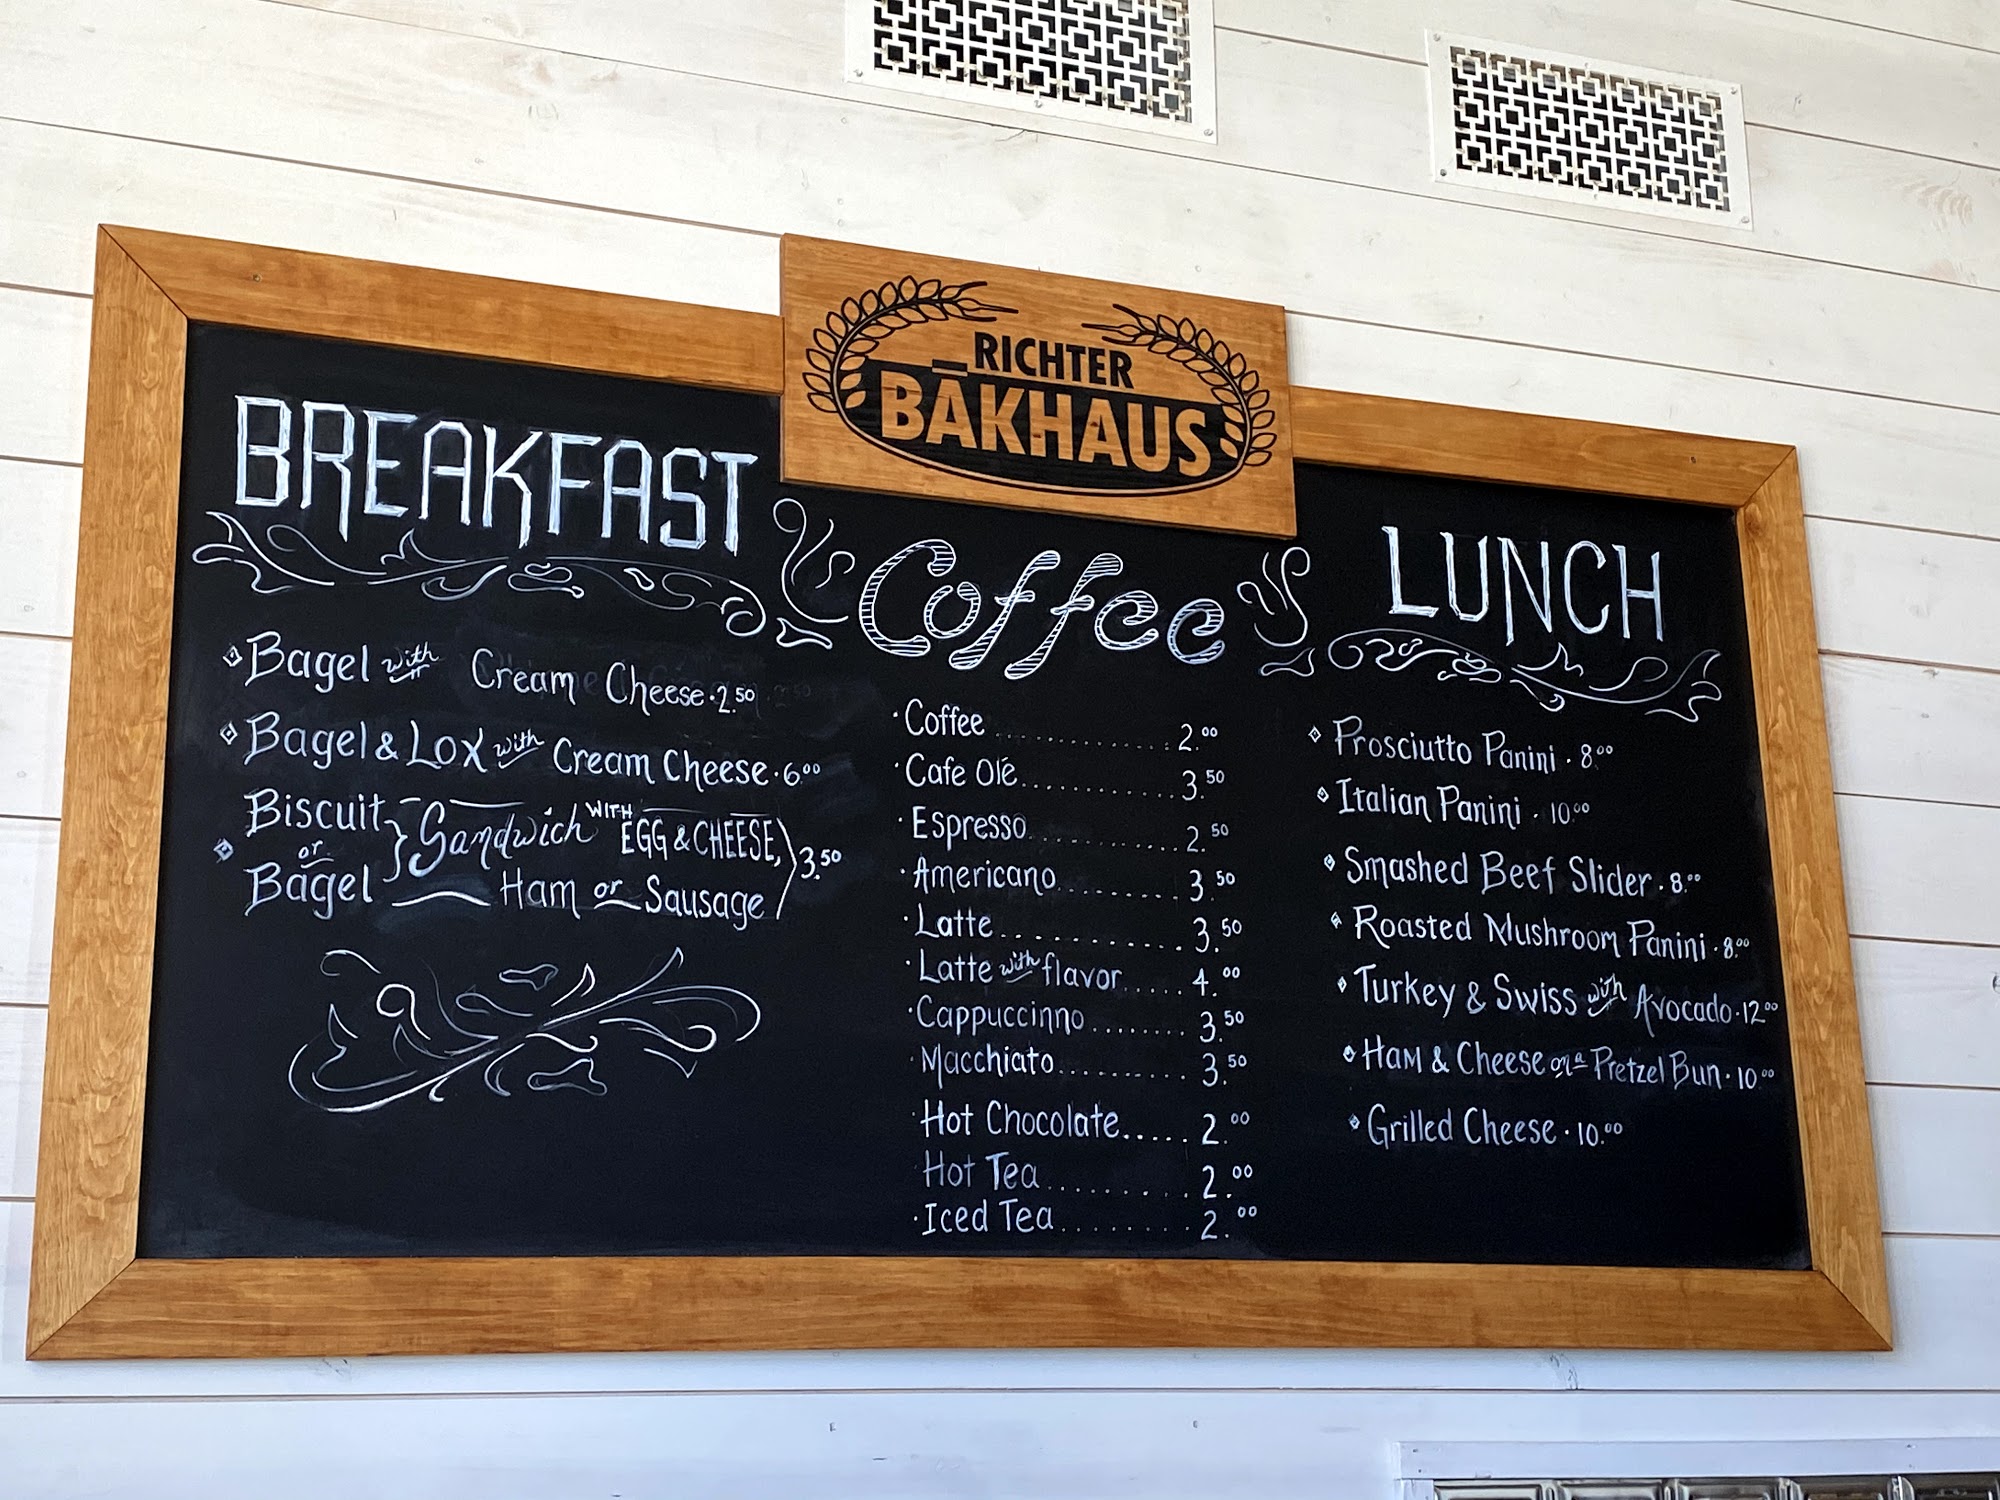 RICHTER
BĀKHAUS
BREAKFAST
Bagel with Cream Cheese · 2.50
Bagel & Lox with Cream Cheese · 6.00
Biscuit or Bagel } Sandwich WITH EGG & CHEESE, Ham or Sausage 3.50
Coffee
· Coffee .............. 2.00
· Cafe Olé ............ 3.50
· Espresso ............ 2.50
· Americano ........... 3.50
· Latte ............ 3.50
· Latte with flavor ..... 4.00
· Cappuccinno ........ 3.50
· Macchiato ......... 3.50
· Hot Chocolate ..... 2.00
Hot Tea .......... 2.00
· Iced Tea ......... 2.00
LUNCH
Prosciutto Panini · 8.00
Italian Panini · 10.00
Smashed Beef Slider · 8.00
Roasted Mushroom Panini · 8.00
Turkey & Swiss with Avocado · 12.00
Ham & Cheese on a Pretzel Bun · 10.00
Grilled Cheese · 10.00